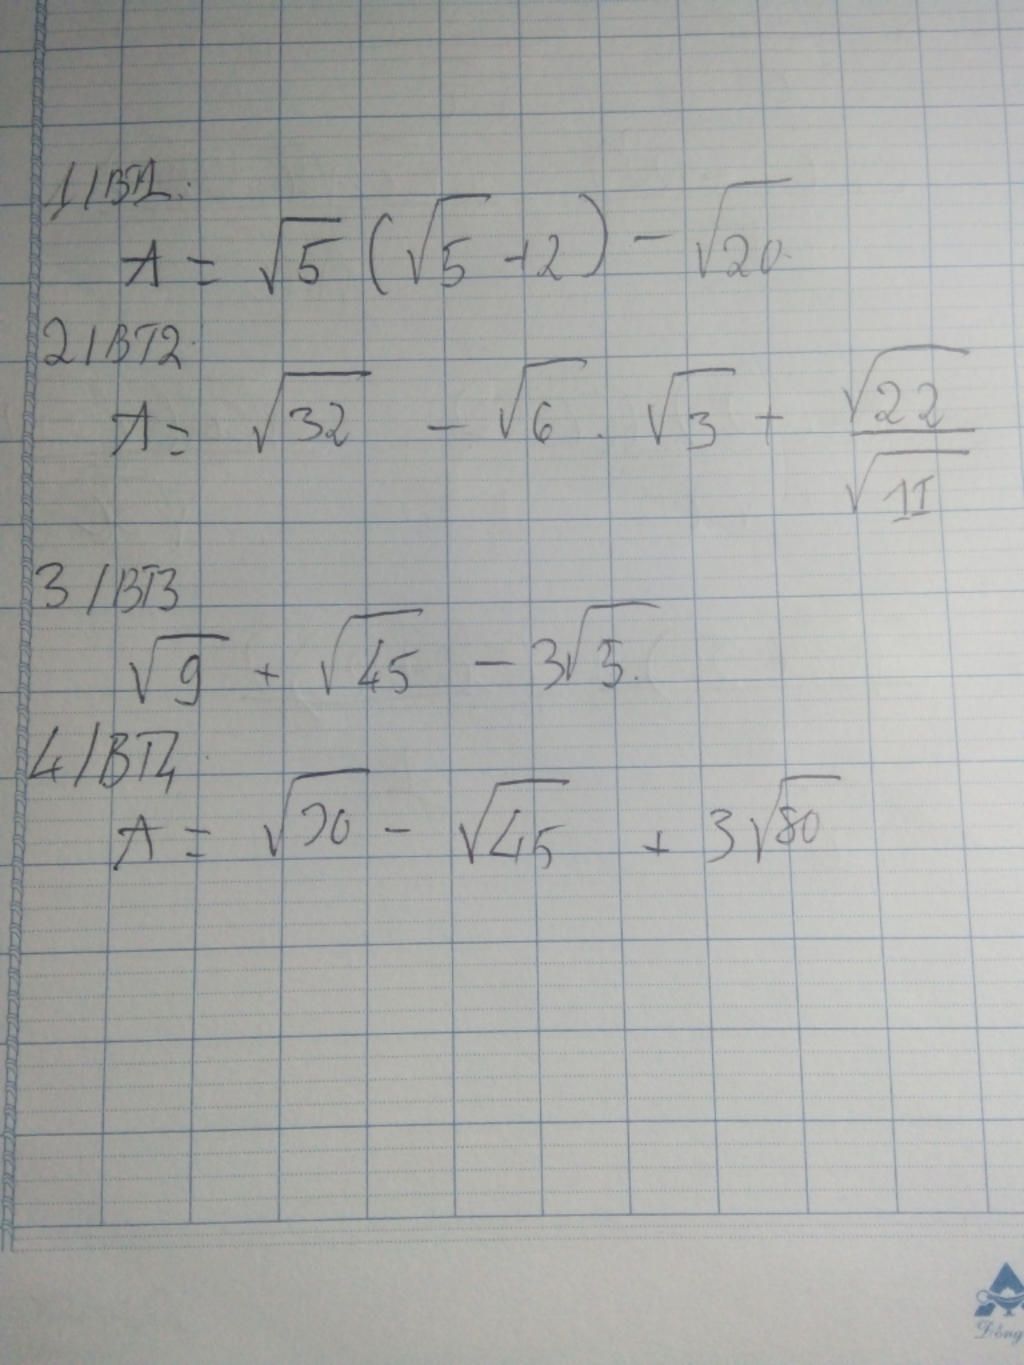 1/BT1.
A = √5 (√5 + 2) - √20.
2/BT2.
A = √32 - √6 . √3 + √22/√11
3/BT3
√9 + √45 - 3√5.
4/BT4
A = √20 - √45 + 3√80
Đông